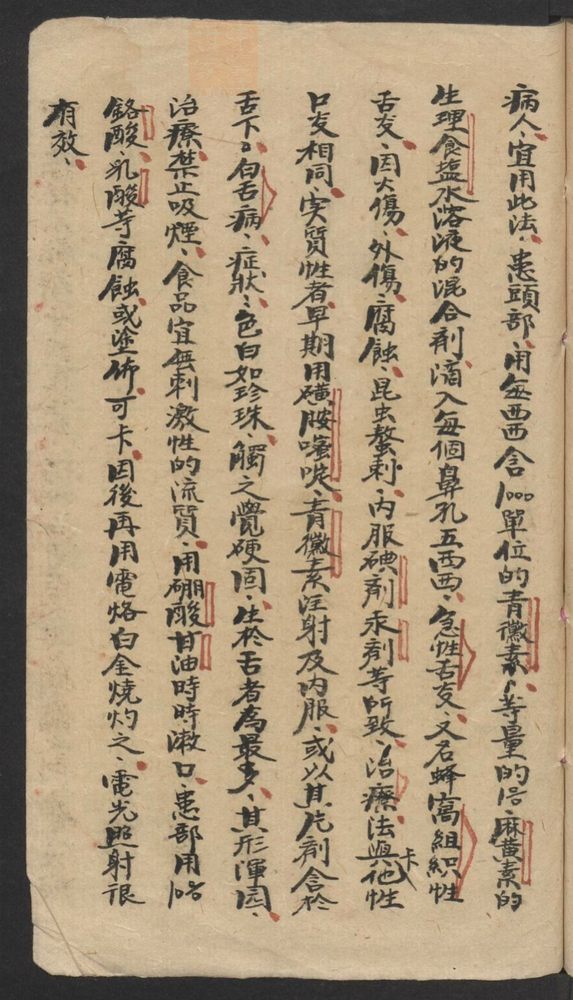 病人、宜用此法、患頭部、用每西西含1000單位的青黴素、等量的1%麻黄素的
生理食盐水溶液的混合剤、滴入每個鼻孔五西西、急性舌炎、又名蜂窩組织性
舌炎、因火傷、外傷、腐蝕、昆虫螫刺、内服碘剤汞剤等所致、治療法與他性
口炎相同、实質性者早期用磺胺噻唑、青黴素注射及内服、或以其片剤含於
舌下、白舌病、症狀、色白如珍珠、觸之覺硬固、生於舌者為最多、其形渾圆、
治療禁止吸煙、食品宜無刺激性的流質、用硼酸甘油時時漱口、患部用10%
鉻酸、乳酸等腐蝕或塗佈可卡因後再用電烙白金燒灼之、電光照射很
有效、